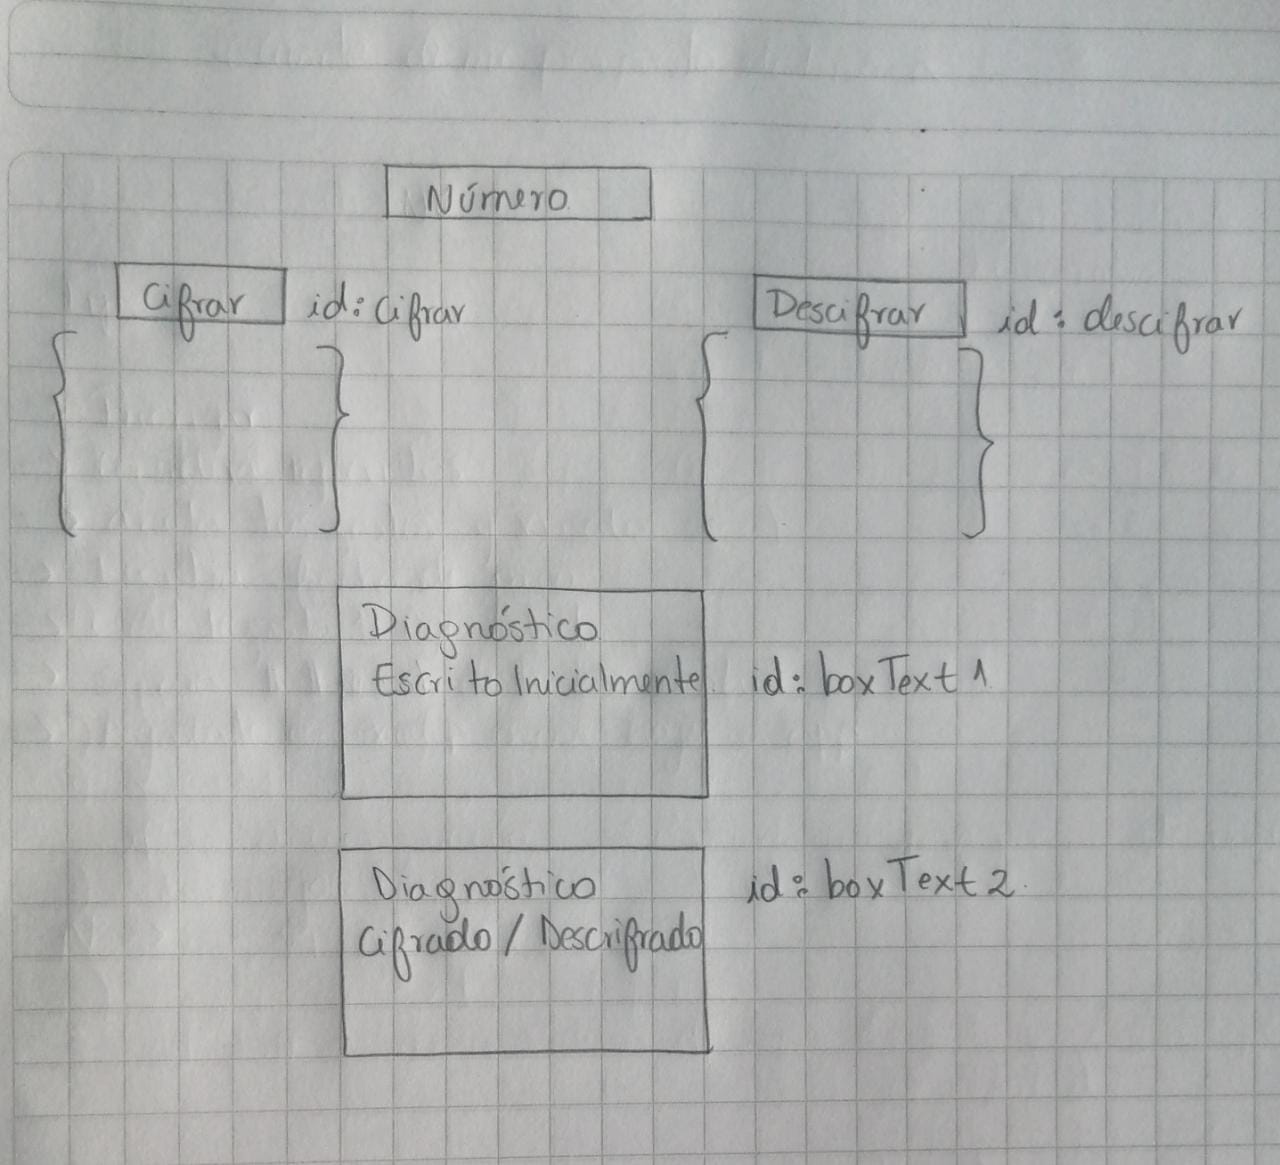 Número
Cifrar id: Cifrar
Descifrar id: descifrar
Diagnóstico
Escrito Inicialmente
id: boxText1
Diagnóstico
Cifrado / Descrifrado
id: boxText2.